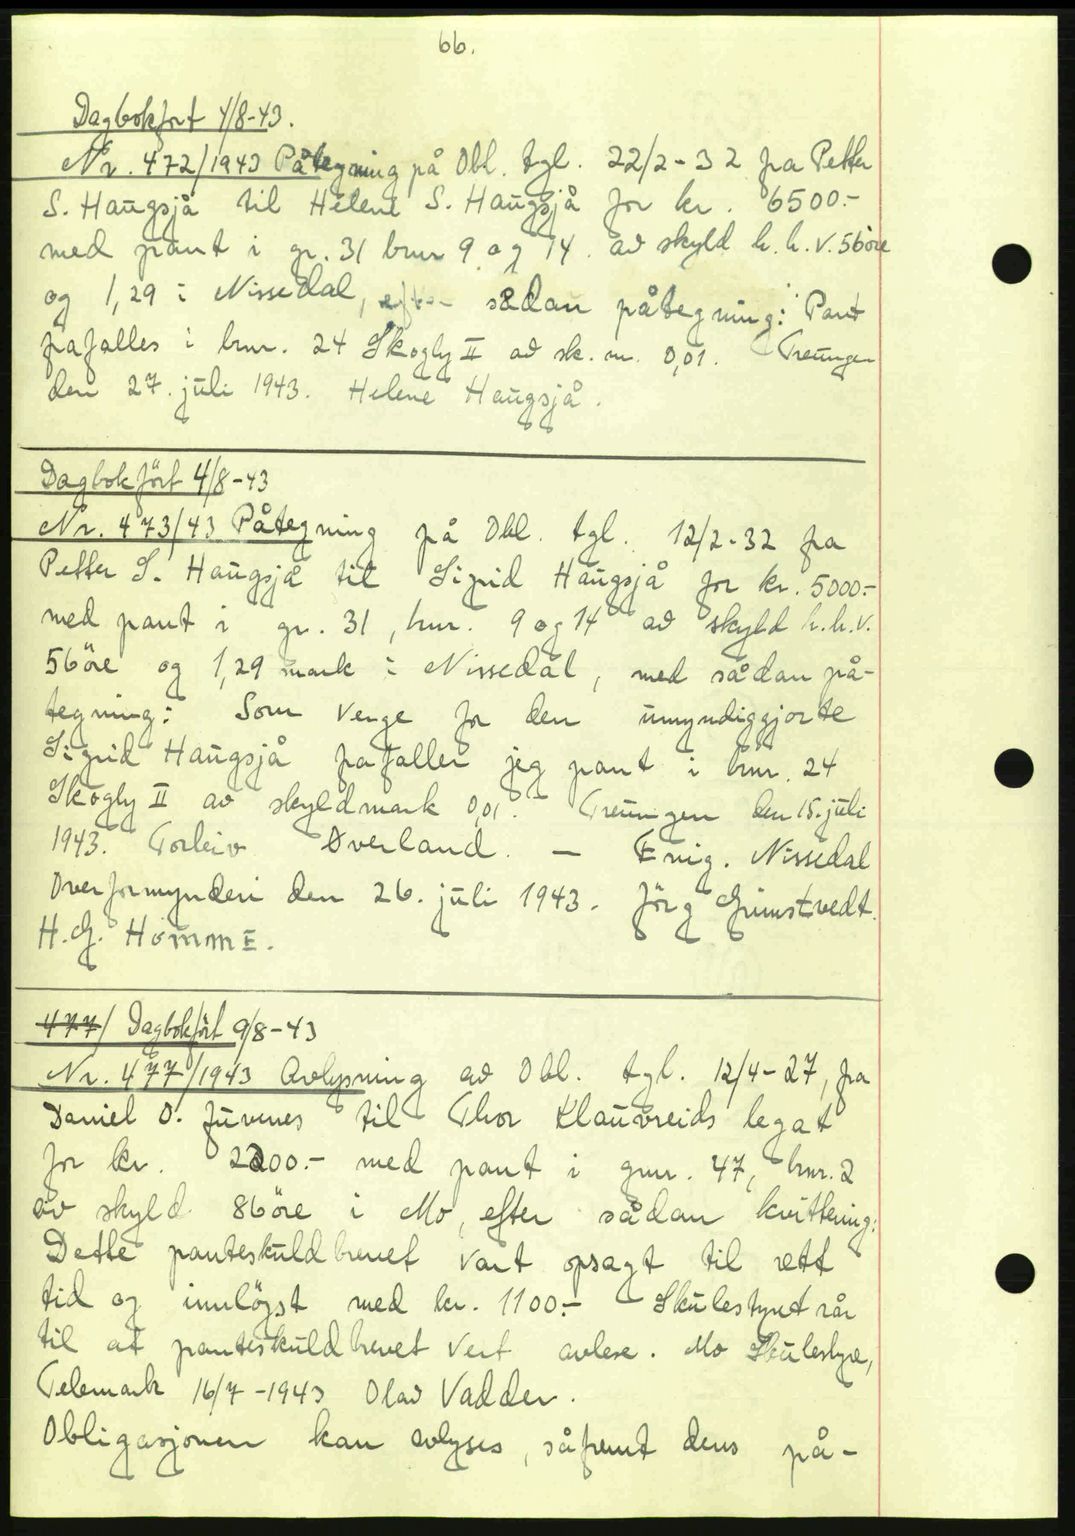 66.
Dagbokfört 4/8-43.
Nr. 472/1943 Påtegning på Obl. tgl. 22/2-32 fra Petter
S. Haugsjå til Helene S. Haugsjå for kr. 6500.-
med pant i gr. 31 bnr 9 og 14 av skyld h.h.v. 56 øre
og 1,29 i Nissedal, sådan påtegning: Pant
frafalles i bnr. 24 Skogly II av sk. m. 0,01. Treungen
den 27. juli 1943. Helene Haugsjå.
Dagbokfört 4/8-43
Nr. 473/43 Påtegning på Obl. tgl. 12/2-32 fra
Petter S. Haugsjå til Sigrid Haugsjå for kr. 5000.-
med pant i gr. 31, bnr. 9 og 14 av skyld h.h.v.
56 öre og 1,29 mark i Nissedal, med sådan på-
tegning: Som verge for den umyndiggjorte
Sigrid Haugsjå frafaller jeg pant i bnr. 24
Skogly II av skyldmark 0,01. Treungen den 15. juli
1943. Torleiv Øverland. — Enig. Nissedal
Overformynderi den 26. juli 1943. Jörg Grimstvedt.
H. G. Homme.
477/ Dagbokfört 9/8-43
Nr. 477/1943 Avlysning av Obl. tgl. 12/4-27, fra
Daniel O. Juvenes til Thor Klauvreids legat
for kr. 2200.- med pant i gnr. 47, bnr. 2
av skyld 86 öre i Mo, efter sådan kvittering:
Dette panteskuldbrevet vart opsagt til rett
tid og innlögst med kr. 1100.- Skulestyret rår
til at panteskuldbrevet vert avlese. Mo Skulestyre,
Telemark 16/7-1943 Olav Vadder.
Obligasjonen kan avlyses, såfremt dens på-